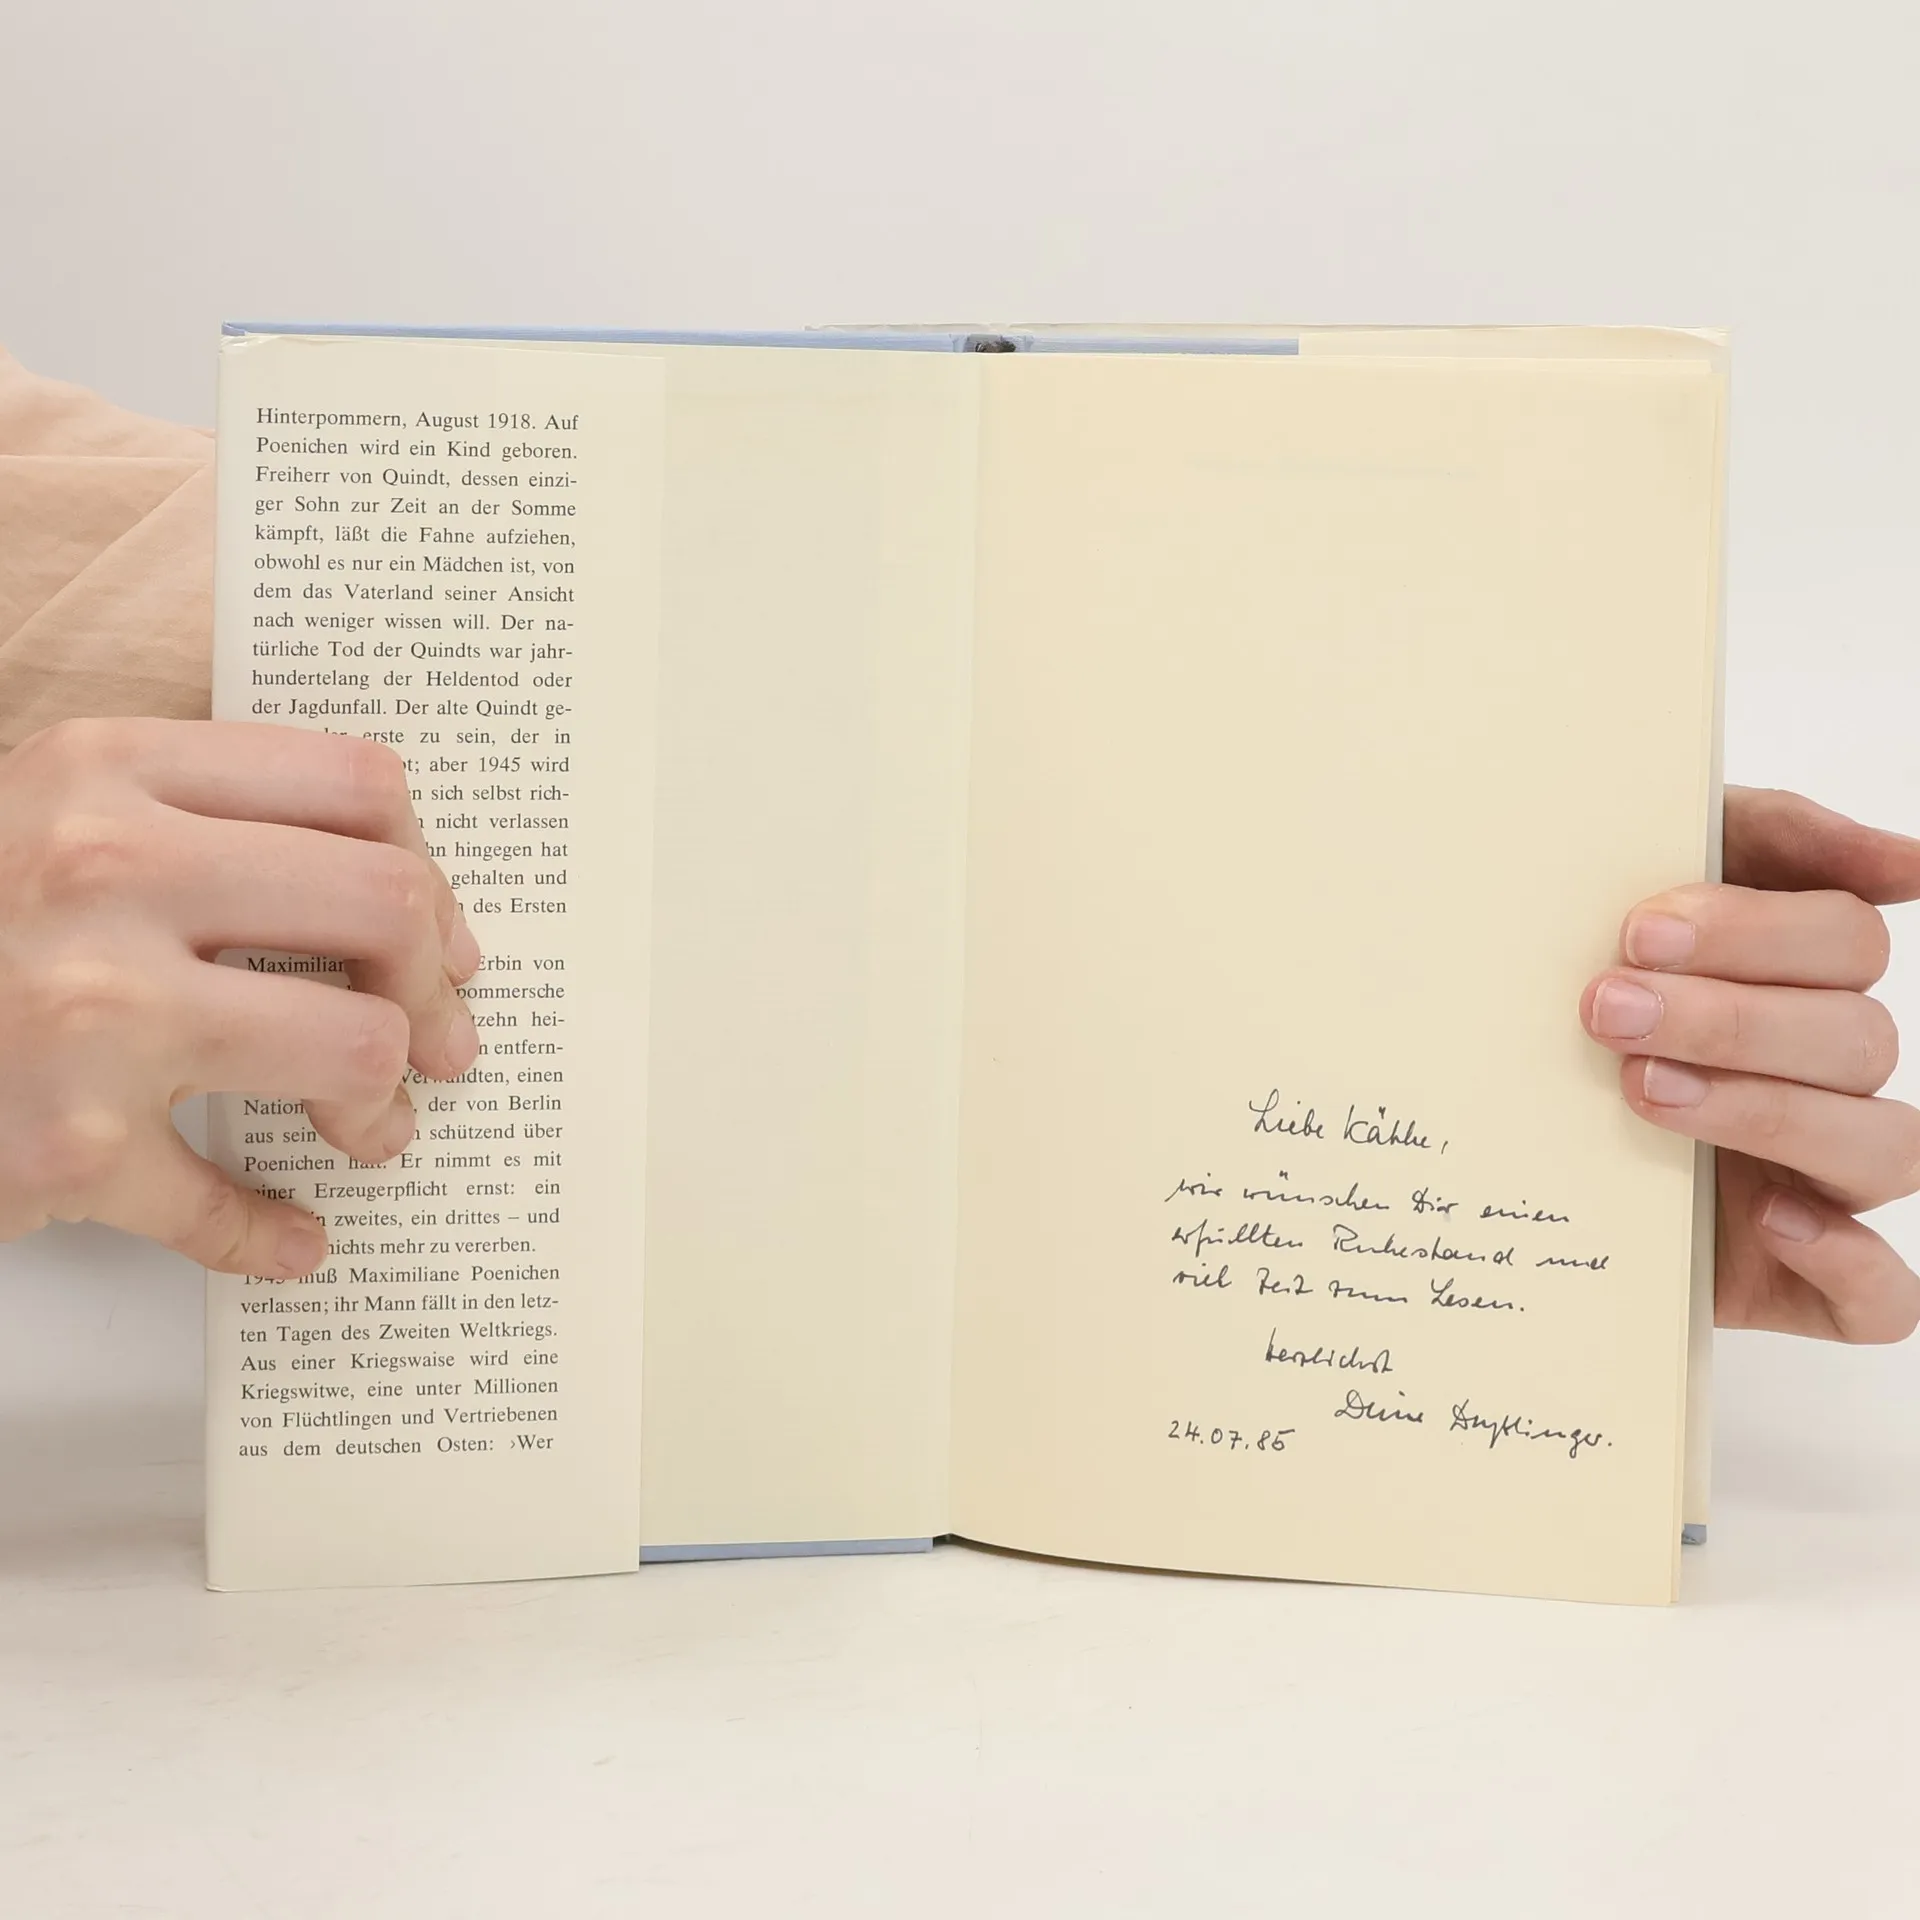 Hinterpommern, August 1918. Auf
Poenichen wird ein Kind geboren.
Freiherr von Quindt, dessen einzi-
ger Sohn zur Zeit an der Somme
kämpft, läßt die Fahne aufziehen,
obwohl es nur ein Mädchen ist, von
dem das Vaterland seiner Ansicht
nach weniger wissen will. Der na-
türliche Tod der Quindts war jahr-
hundertelang der Heldentod oder
der Jagdunfall. Der alte Quindt ge-
erste zu sein, der in
aber 1945 wird
sich selbst rich-
nicht verlassen
hingegen hat
gehalten und
des Ersten
Erbin von
pommersche
hei-
entfern-
einen
der von Berlin
aus sein schützend über
Poenichen Er nimmt es mit
Erzeugerpflicht ernst: ein
zweites, ein drittes – und
nichts mehr zu vererben.
1945 muß Maximiliane Poenichen
verlassen; ihr Mann fällt in den letz-
ten Tagen des Zweiten Weltkriegs.
Aus einer Kriegswaise wird eine
Kriegswitwe, eine unter Millionen
von Flüchtlingen und Vertriebenen
aus dem deutschen Osten: ›Wer
Liebe Käthe,
wir wünschen Dir einen
erfüllten Ruhestand und
viel Zeit zum Lesen.
herzlichst
Deine
24.07.85